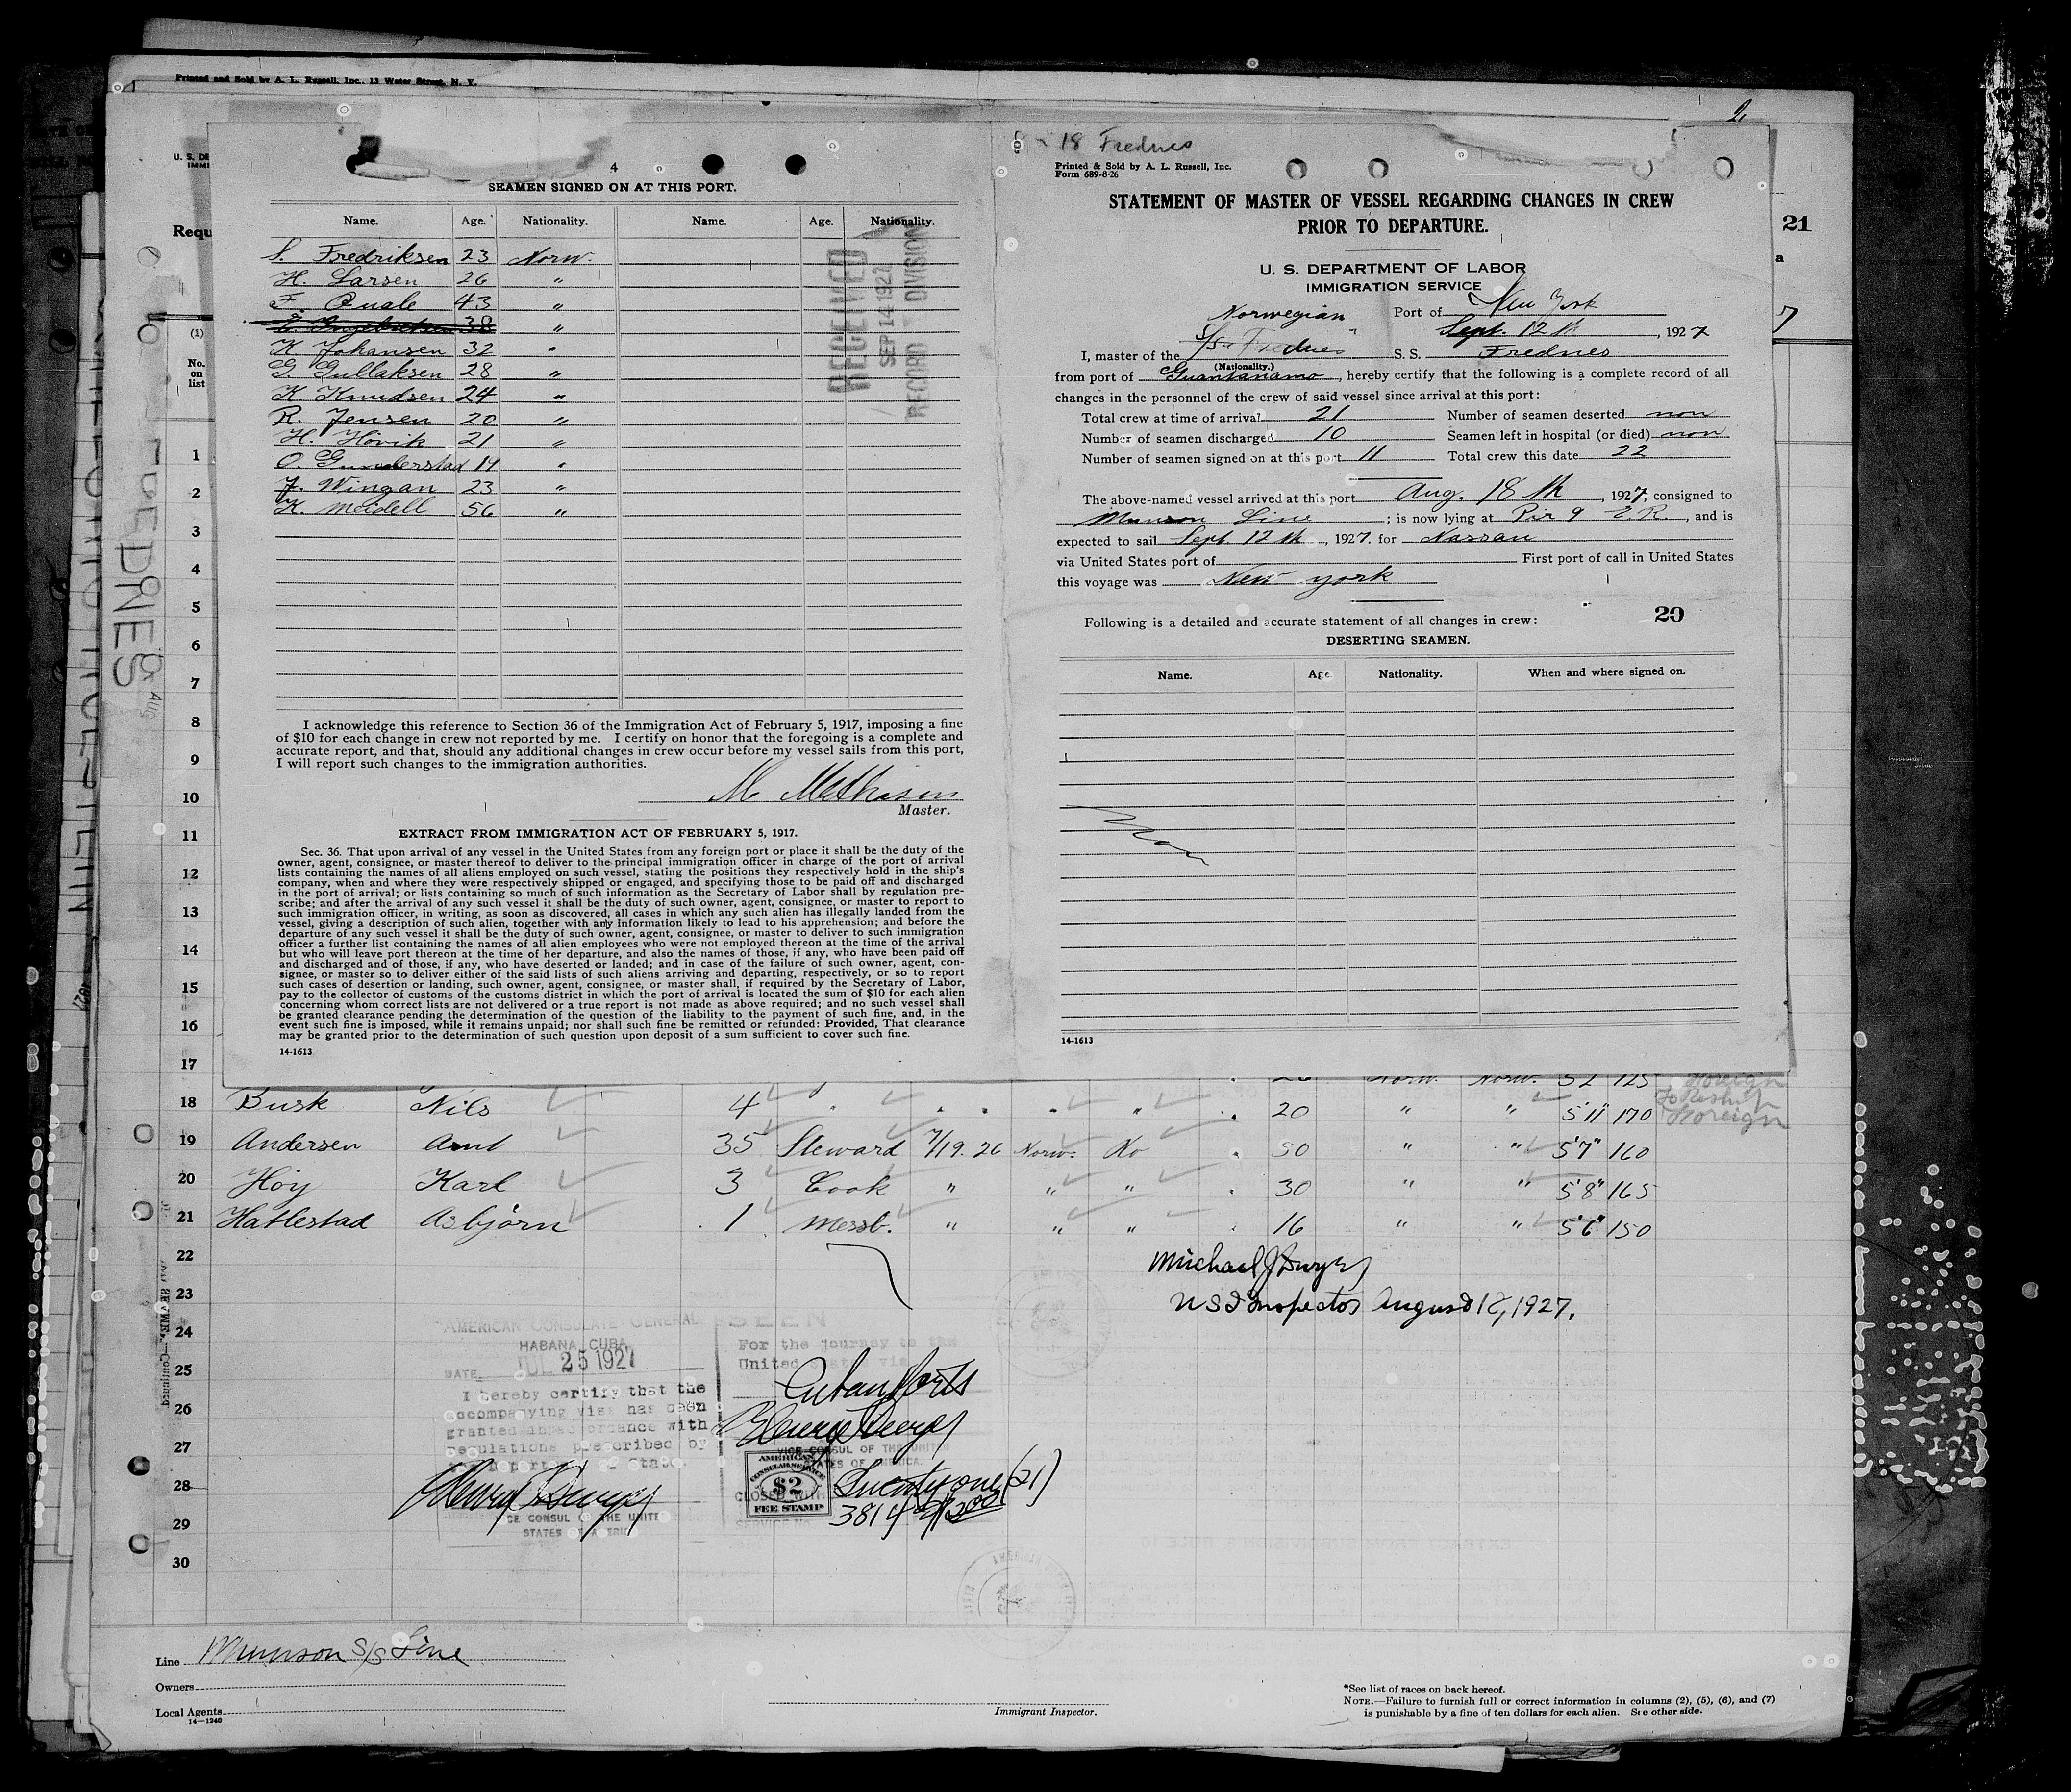 Printed and Sold by A. L. Russell, Inc., 13 Water Street, N. Y.
2
U. S. DE
IMMI
Requ
(1)
No.
on
list
4
SEAMEN SIGNED ON AT THIS PORT.
Name. Age. Nationality. Name. Age. Nationality.
S. Fredriksen 23 Norw.
H. Larsen 26 "
F. Quale 43 "
38 "
K Johansen 32 "
G. Gullaksen 28 "
K Knudsen 24 "
R. Jensen 20 "
H. Hövik 21 "
O. Gunderstad 19 "
J. Wingan 23 "
K. Meidell 56 "
RECEIVED
SEP 14 1927
RECORD DIVISION
I acknowledge this reference to Section 36 of the Immigration Act of February 5, 1917, imposing a fine
of $10 for each change in crew not reported by me. I certify on honor that the foregoing is a complete and
accurate report, and that, should any additional changes in crew occur before my vessel sails from this port,
I will report such changes to the immigration authorities.
M. Mathisen
Master.
EXTRACT FROM IMMIGRATION ACT OF FEBRUARY 5, 1917.
Sec. 36. That upon arrival of any vessel in the United States from any foreign port or place it shall be the duty of the
owner, agent, consignee, or master thereof to deliver to the principal immigration officer in charge of the port of arrival
lists containing the names of all aliens employed on such vessel, stating the positions they respectively hold in the ship's
company, when and where they were respectively shipped or engaged, and specifying those to be paid off and discharged
in the port of arrival; or lists containing so much of such information as the Secretary of Labor shall by regulation pre-
scribe; and after the arrival of any such vessel it shall be the duty of such owner, agent, consignee, or master to report to
such immigration officer, in writing, as soon as discovered, all cases in which any such alien has illegally landed from the
vessel, giving a description of such alien, together with any information likely to lead to his apprehension; and before the
departure of any such vessel it shall be the duty of such owner, agent, consignee, or master to deliver to such immigration
officer a further list containing the names of all alien employees who were not employed thereon at the time of the arrival
but who will leave port thereon at the time of her departure, and also the names of those, if any, who have been paid off
and discharged and of those, if any, who have deserted or landed; and in case of the failure of such owner, agent, con-
signee, or master so to deliver either of the said lists of such aliens arriving and departing, respectively, or so to report
such cases of desertion or landing, such owner, agent, consignee, or master shall, if required by the Secretary of Labor,
pay to the collector of customs of the customs district in which the port of arrival is located the sum of $10 for each alien
concerning whom correct lists are not delivered or a true report is not made as above required; and no such vessel shall
be granted clearance pending the determination of the question of the liability to the payment of such fine, and, in the
event such fine is imposed, while it remains unpaid; nor shall such fine be remitted or refunded: Provided, That clearance
may be granted prior to the determination of such question upon deposit of a sum sufficient to cover such fine.
14-1613
18 Frednes
Printed & Sold by A. L. Russell, Inc.
Form 689-8-26
STATEMENT OF MASTER OF VESSEL REGARDING CHANGES IN CREW
PRIOR TO DEPARTURE.
U. S. DEPARTMENT OF LABOR
IMMIGRATION SERVICE
Norwegian Port of New York
Sept. 12th, 1927
I, master of the S/S Frednes S. S. Frednes
(Nationality.)
from port of Guantanamo, hereby certify that the following is a complete record of all
changes in the personnel of the crew of said vessel since arrival at this port:
Total crew at time of arrival 21 Number of seamen deserted non
Number of seamen discharged 10 Seamen left in hospital (or died) non
Number of seamen signed on at this port 11 Total crew this date 22
The above-named vessel arrived at this port Aug. 18th, 1927, consigned to
Munson Line; is now lying at Pir 9 E.R., and is
expected to sail Sept. 12th, 1927. for Nassau
via United States port of First port of call in United States
this voyage was New York
20
Following is a detailed and accurate statement of all changes in crew:
DESERTING SEAMEN.
Name. Age. Nationality. When and where signed on.
Non
14-1613
21
a
7
FREDNES
Aug
1
2
3
4
5
6
7
8
9
10
11
12
13
14
15
16
17 Norw. Norw. 52 125 Foreign
18 Busk Nils 4 " " " " " 20 " " 5'11" 170 To Reship Foreign
19 Andersen Arnt 35 Steward 7/19. 26 Norw. No 50 " " 5'7" 160
20 Höy Karl 3 Cook " " " 30 " " 5'8" 165
21 Hatlestad Asbjörn 1 Messb. " " " 16 " " 5'6" 150
22
23
24
25
26
27
28
29
30
Michael J Dwyer
US I Inspector August 18, 1927.
AMERICAN CONSULATE GENERAL
HABANA, CUBA
DATE JUL 25 1927
I hereby certify that the
accompanying visa has been
granted in accordance with
regulations prescribed by
the Department of State.
VICE CONSUL OF THE UNITED
STATES OF AMERICA
SEEN
For the journey to the
United States via
Cuban ports
VICE CONSUL OF THE UNITED
STATES OF AMERICA.
Twenty one (21)
3814
AMERICAN
CONSULAR SERVICE
$2
FEE STAMP
Line Munson S/S Line
Owners
Local Agents
14—1240
Immigrant Inspector.
*See list of races on back hereof.
NOTE.—Failure to furnish full or correct information in columns (2), (5), (6), and (7)
is punishable by a fine of ten dollars for each alien. See other side.